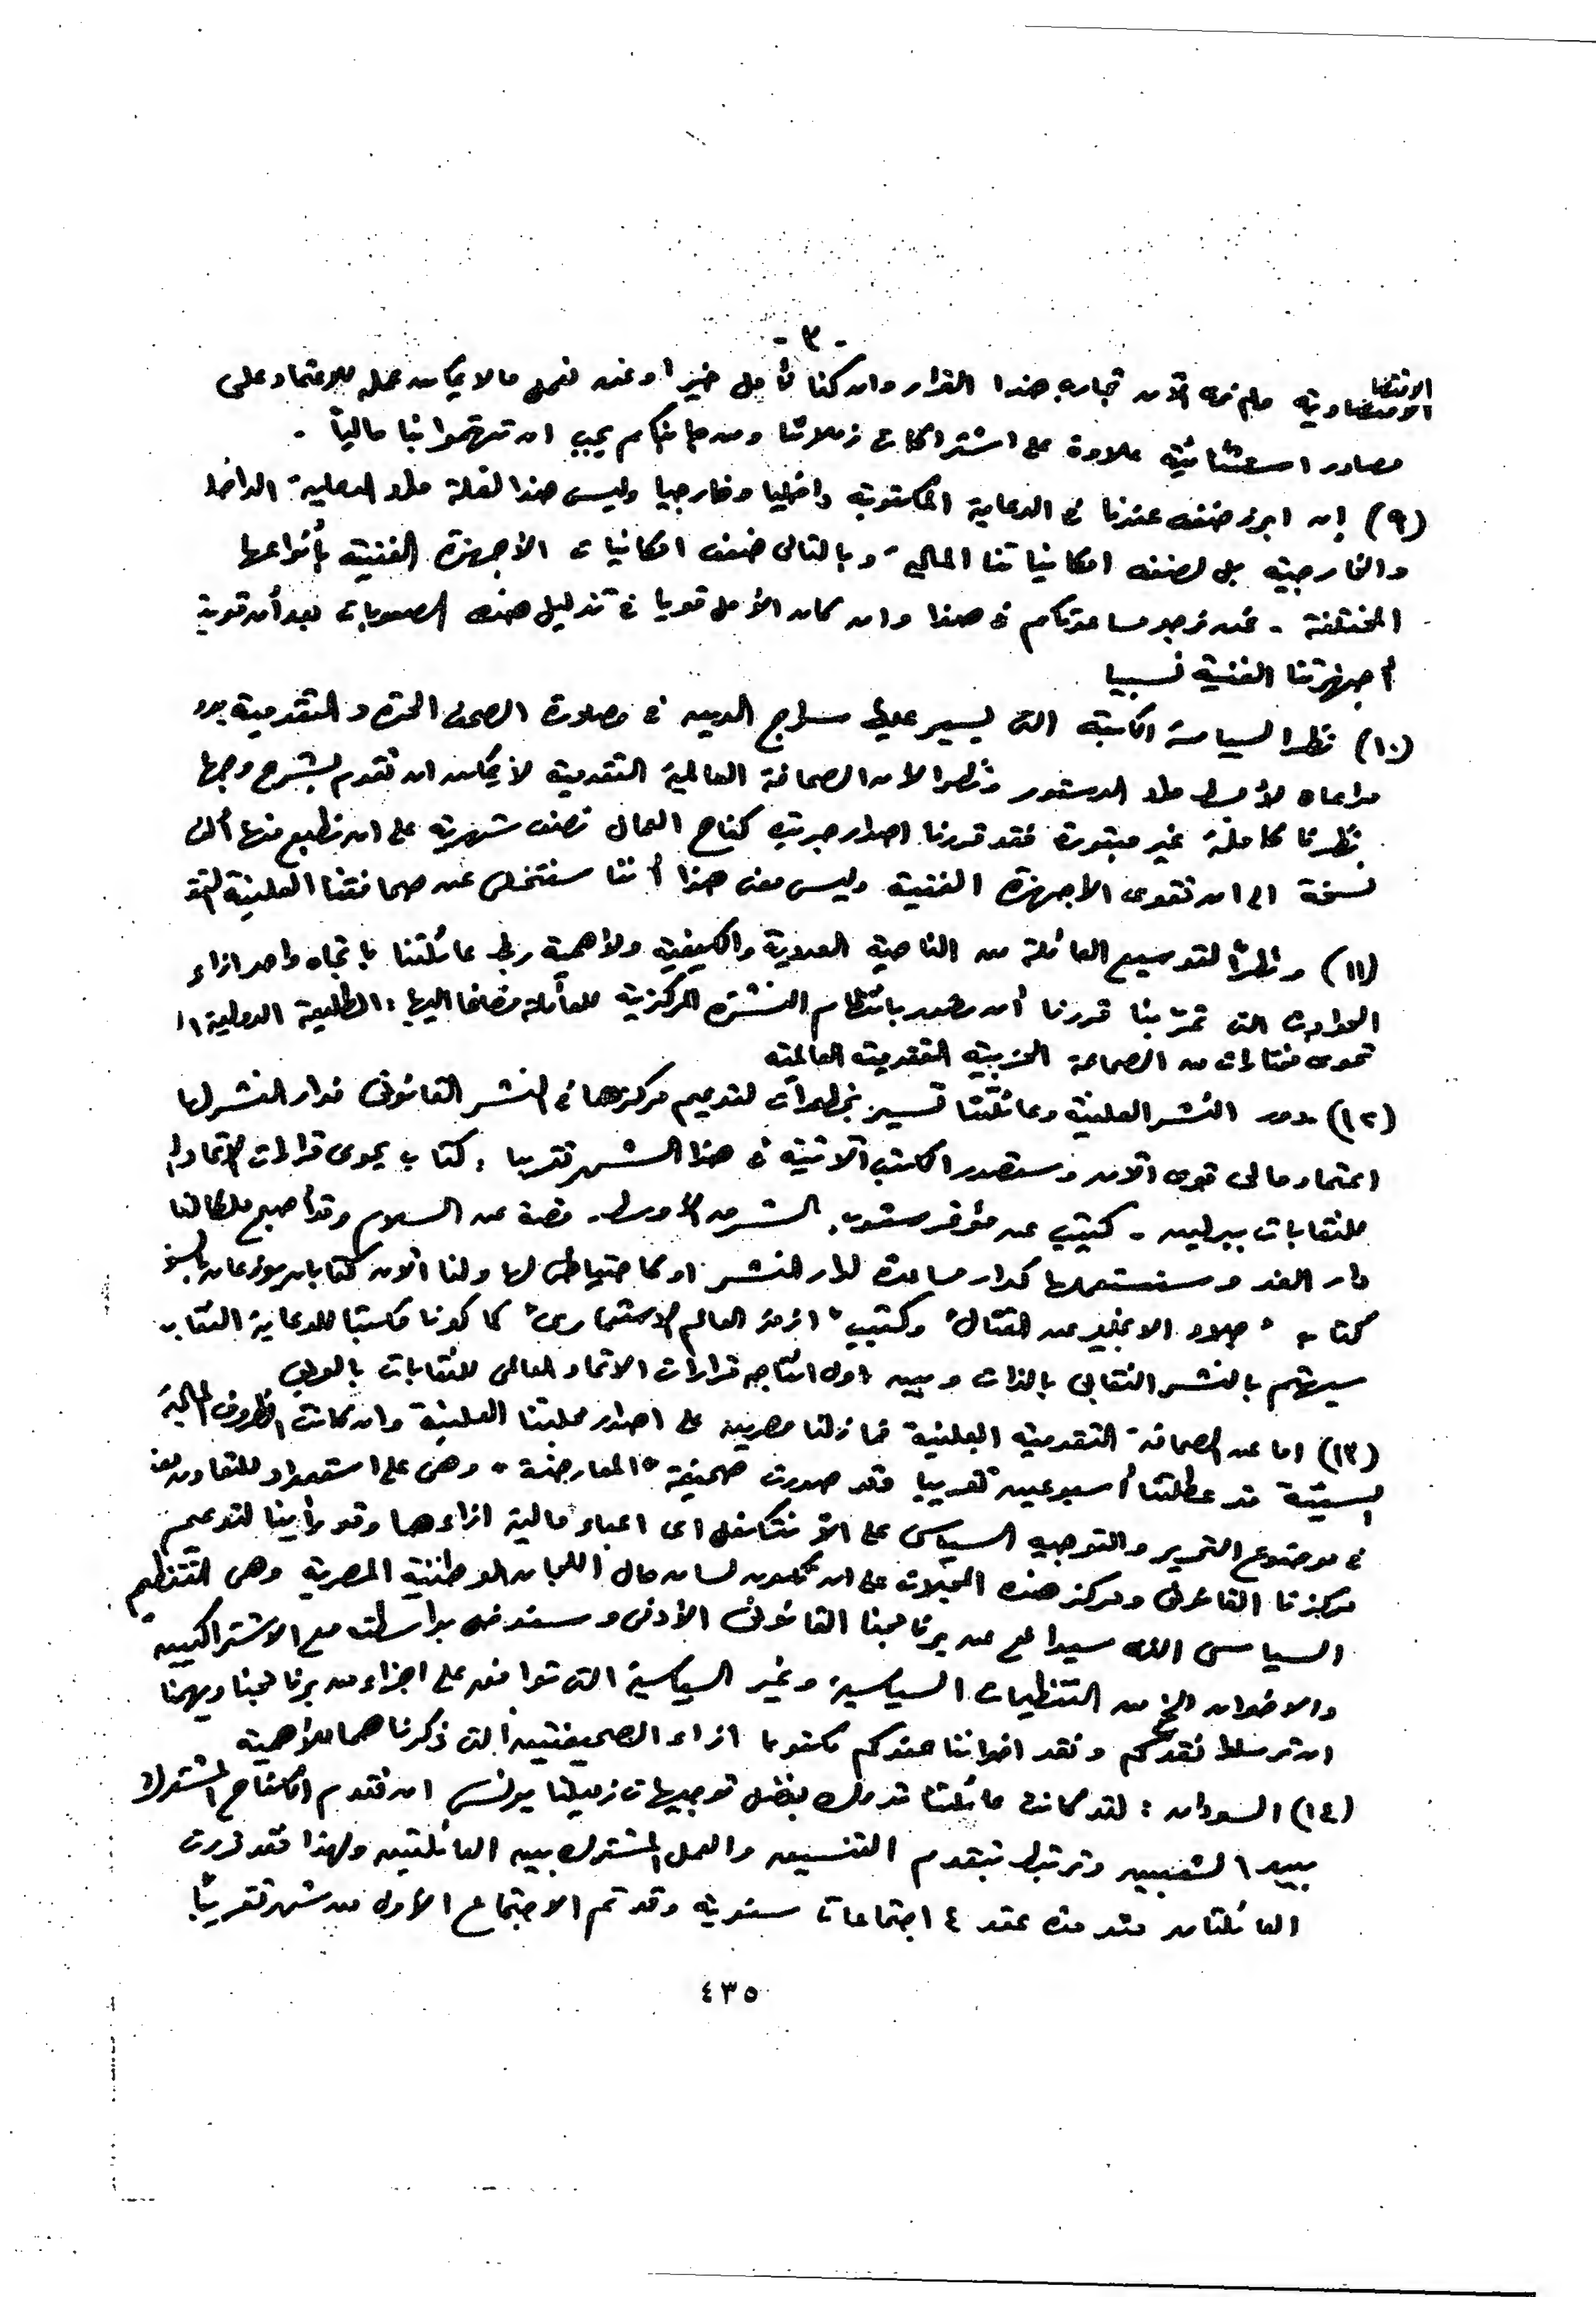 - ٣ -
الاقتصا
الاقتصادية ولم نره الآن تجارب هذا القرار وان كنا نأمل خيرا ونحن نعمل مالا يمكن عمله للاعتماد على
مصادر استثنائية علاوة على اشتراكات زملائنا ومن جانبكم يجب ان تهتموا بنا مالياً .
(٩) إن ابرز ضعف عندنا فى الدعاية المكتوبة داخليا وخارجيا وليس هذا لقلة المادة الداخلية
والخارجية بل لضعف امكانياتنا المالية وبالتالى ضعف امكانيات الأجهزة الفنية بأنواعها
المختلفة - نحن نرجو مساعدتكم فى هذا وان كان الأمل قويا فى تذليل هذه الصعوبات بعد أن قوية
أجهزتنا الفنية نسبيا
(١٠) نظرا لسياسة الكبت التى يسير عليها سراج الدين فى مصادرة الصحف الحرة والتقدمية بدون
مراعاة لأبسط مواد الدستور ونظرا لأن الصحافة العالمية التقدمية لا يمكن ان تقوم بشرح وجهة
نظرنا كاملة غير مبتورة فقد قررنا اصدار جريدة كفاح العمال نصف شهرية على ان نطبع منها ألف
نسخة الى ان تقوى الأجهزة الفنية وليس معنى هذا أننا سنتخلى عن صحافتنا العلنية
(١١) ونظراً لتوسيع العائلة من الناحية العددية والكيفية ولأهمية ربط عائلتنا باتجاه واحد ازاء
الحوادث التى تمر بنا قررنا أن نصدر بانتظام النشرة المركزية للعائلة مضافا اليها : الطليعة الدولية
تحوى مختارات من الصحافة الحزبية التقدمية العالمية
(١٢) دور النشر العلنية وعائلتنا تسير بخطوات لتدعيم مركزها فى النشر القانونى فدار النشر لها
اعتماد مالى قوى الآن وستصدر الكتب الآتية فى هذا الشهر تقريبا : كتاب يحوى قرارات الاتحاد
للنقابات ببرلين - كتيب عن مؤتمر شعوب الشرق الأوسط - قصة عن السلام وقد أصبح ملكا لنا
دار الغد وسنستعملها كدار مساعدة لدار النشر او كاحتياطى لها ولنا الآن كتابان يوزعان بالسوق
كتاب " جلاء الانجليز عن القنال " وكتيب " ازمة العالم الاستعمارى " كما كونا مكتبا للدعاية النقابية
سيهتم بالنشر النقابى بالذات وبين اول انتاجه قرارات الاتحاد العالمى للنقابات بالعربى
(١٣) اما عن الصحافة التقدمية العلنية فما زلنا مصرين على اصدار مجلتنا العلنية وان كانت الظروف المالية
السيئة قد عطلتنا أسبوعين تقريبا فقد صدرت صحيفة " المعارضة " وهى على استعداد للتعاون معنا
فى موضوع التحرير والتوجيه السياسى على الا نتكفل اى اعباء مالية ازاءها وقد رأينا لتدعيم
مركزنا القانونى ومركز هذه المجلات على ان تكون لسان حال اللجان الوطنية المصرية وهى التنظيم
السياسى الذى سيدافع عن برنامجنا القانونى الأدنى وسنتعاون بواسطته مع الاشتراكيين
والاخوان الخ من التنظيمات السياسية وغير السياسية التى توافق على اجزاء من برنامجنا ويهمنا
ان ترسلوا نقدكم ونقد اخواننا عندكم مكتوبا ازاء الصحيفتين التى ذكرناهما للأهمية
(١٤) السودان : لقد كانت عائلتنا تدرك بفضل توجيهات زميلنا يونس ان تقدم الكفاح المشترك
بين الشعبين وترتبط بتقدم التنسيق والعمل المشترك بين العائلتين ولهذا فقد قررت
العائلتان عقد ٤ اجتماعات سنوية وقد تم الاجتماع الأول من شهر تقريباً
٤٣٥